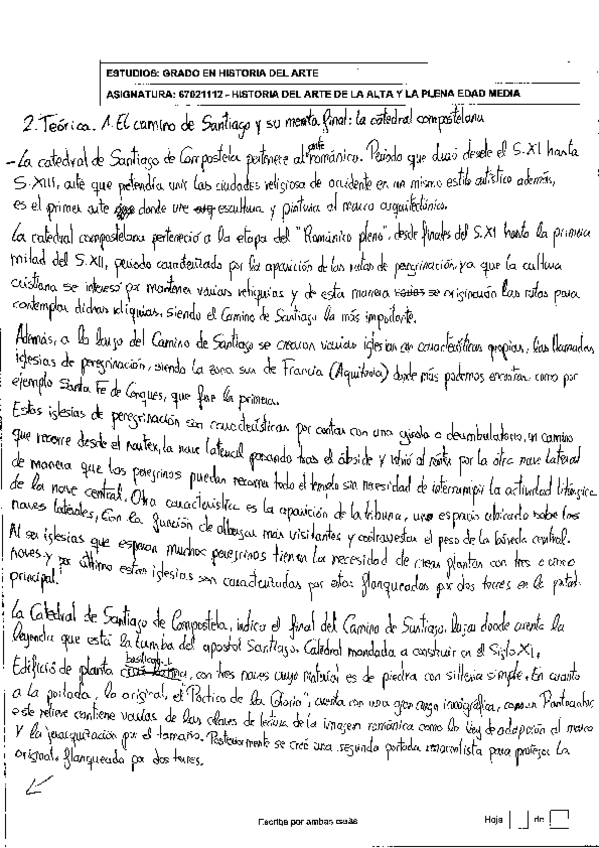 ESTUDIOS: GRADO EN HISTORIA DEL ARTE
ASIGNATURA: 67021112 - HISTORIA DEL ARTE DE LA ALTA Y LA PLENA EDAD MEDIA
2. Teórica. 1. El camino de Santiago y su meta final: la catedral compostelana
- La catedral de Santiago de Compostela pertenece al arte románico. Periodo que duró desde el S.XI hasta
S.XIII, arte que pretendía unir las ciudades religiosa de occidente en un mismo estilo artístico además,
es el primer arte donde une escultura y pintura al marco arquitectónico.
La catedral compostelana perteneció a la etapa del "Románico pleno", desde finales del S.XI hasta la primera
mitad del S.XII, periodo caracterizado por la aparición de las rutas de peregrinación, ya que la cultura
cristiana se interesó por mantener varias reliquias y de esta manera se originarón las rutas para
contemplar dichas reliquias, siendo el Camino de Santiago la más importante.
Además, a lo largo del Camino de Santiago se crearon varias iglesias con características propias, las llamadas
iglesias de peregrinación, siendo la zona sur de Francia (Aquitania) donde más podemos encontrar como por
ejemplo Santa Fe de Conques, que fue la primera.
Estas iglesias de peregrinación son características por contar con una girola o deambulatorio, un camino
que recorre desde el nartex, la nave lateral pasando tras el ábside y volvió al nartex por la otra nave lateral
de manera que los peregrinos puedan recorrer todo el templo sin necesidad de interrumpir la actividad litúrgica
de la nave central. Otra característica es la aparición de la tribuna, un espacio ubicado sobre las
naves laterales, con la función de albergar más visitantes y contrarrestar el peso de la bóveda central.
Al ser iglesias que esperan muchos peregrinos tienen la necesidad de crear plantas con tres o cinco
naves y por último estas iglesias son caracterizadas por estar flanqueadas por dos torres en la portada
principal.
La Catedral de Santiago de Compostela, indica el final del Camino de Santiago. Lugar donde cuenta la
leyenda que está la tumba del apostol Santiago. Catedral mandada a construir en el Siglo XI.
Edificio de planta basilical, con tres naves cuyo material es de piedra con sillería simple. En cuanto
a la portada, la original, el "Pórtico de la Gloria", cuenta con una gran carga iconográfica, como un Pantocrator,
este relieve contiene varias de las claves de lectura de la imagen románica como la ley de adaptación al marco
y la jerarquización por el tamaño. Posteriormente se creó una segunda portada para proteger la
original. flanqueada por dos torres.
Escriba por ambas caras
Hoja de